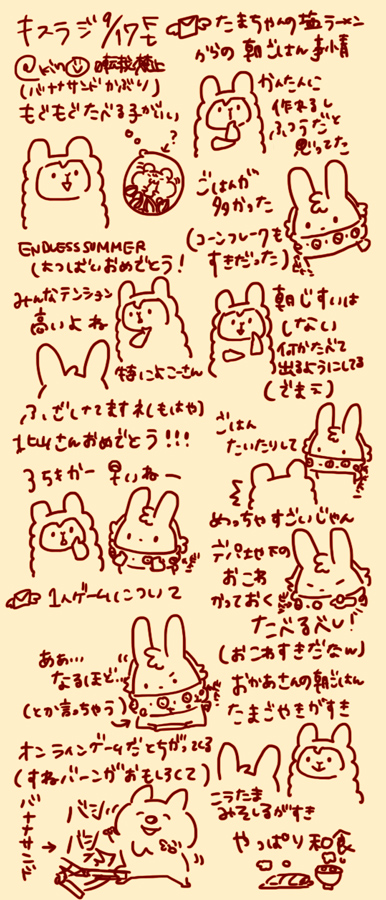 キスラジ9/17
(バナナサンドかぶり)
もぐもぐたべる子がいい
?
ENDLESS SUMMER
おめでとう!
みんなテンション
高いよね
特によこーさん
ふざけてますね(もはや)
さんおめでとう!!!
早いねー
1人ゲームについて
ああ…
なるほど…
(とか言っちゃう)
オンラインゲームだとちがってくる
(すねバーンがおもしろくて)
バナナサンド
バシ
バシ
たまちゃんの塩ラーメン
からの朝ごはん事情
かんたんに
作れるし
ふつうだと
思ってた
ごはんが
多かった
(コーンフレークも
すきだった)
朝じすいは
しない
何かたべて
出るようにしてる
ごはん
たいたりして
めっちゃすごいじゃん
デパ地下の
おこわ
かっておく
たべるべし!
(おこわすきだなw)
おかあさんの朝ごはん
たまごやきがすき
こうたま
みそしるがすき
やっぱり和食